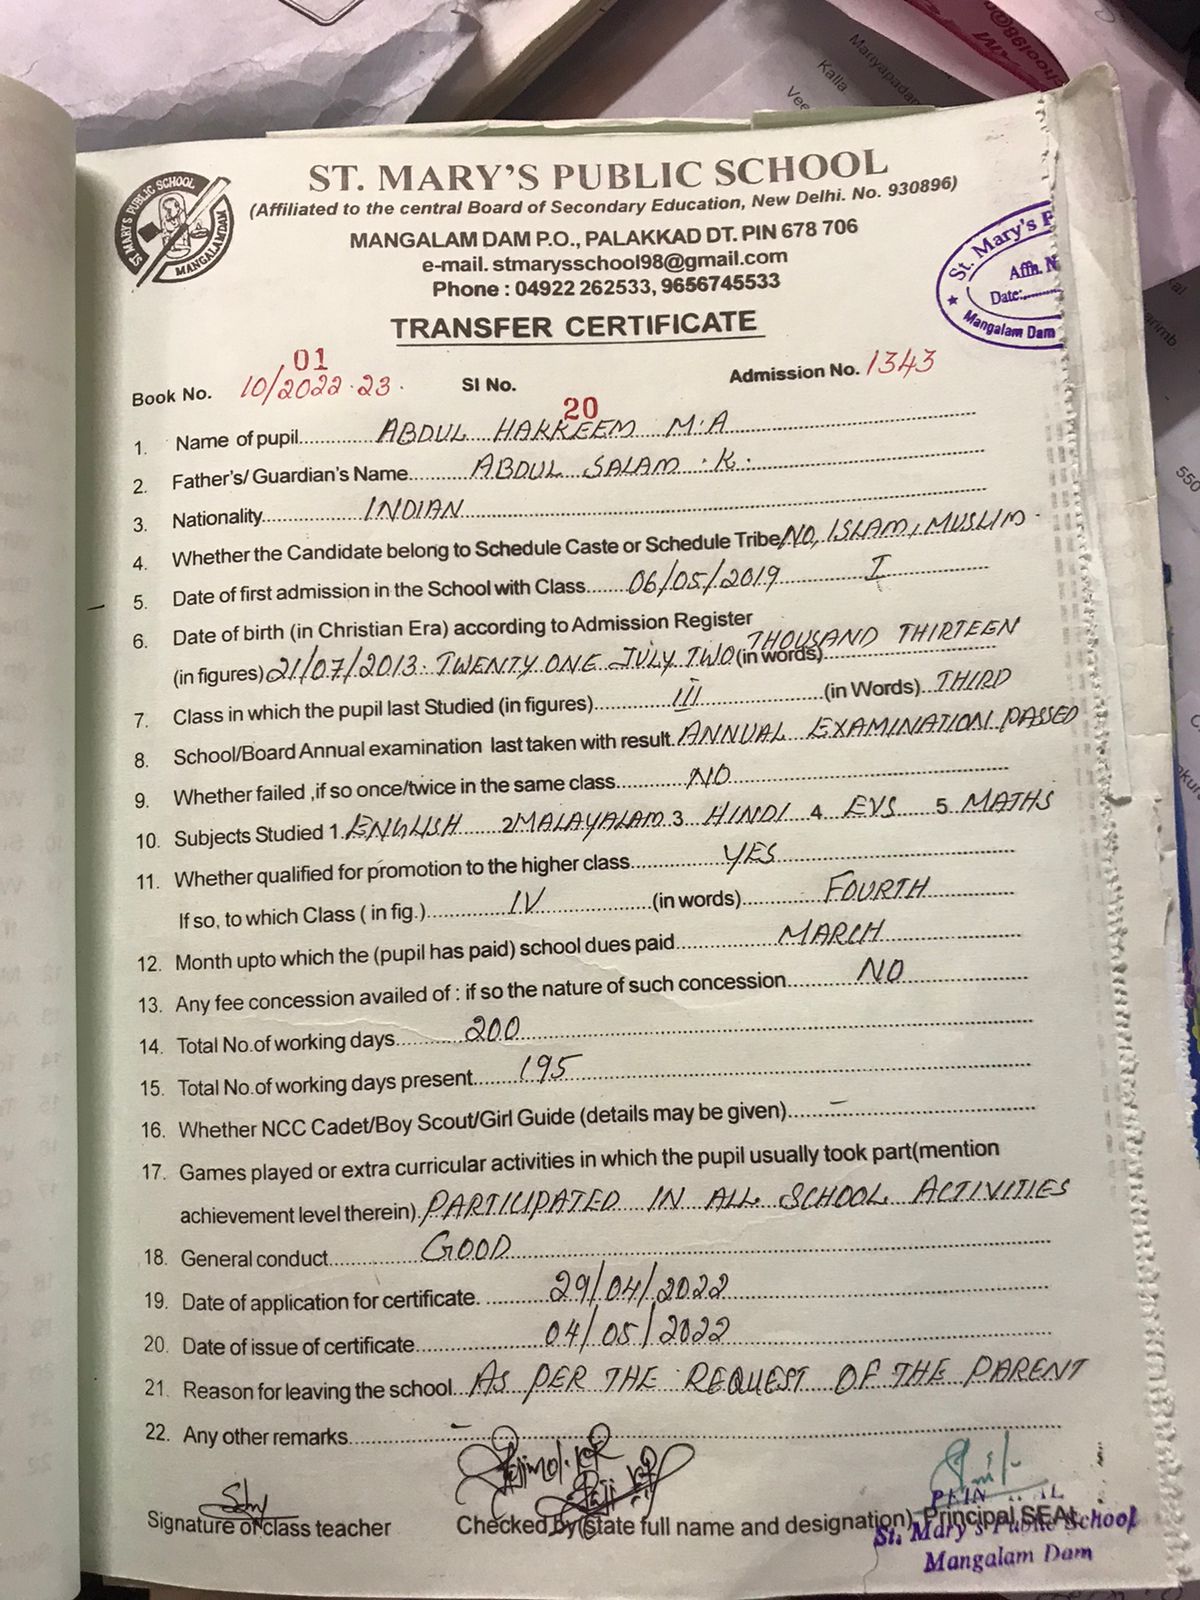 ST. MARY'S PUBLIC SCHOOL
MANGALAMDAM
ST. MARY'S PUBLIC SCHOOL
(Affiliated to the central Board of Secondary Education, New Delhi. No. 930896)
MANGALAM DAM P.O., PALAKKAD DT. PIN 678 706
e-mail. stmarysschool98@gmail.com
Phone : 04922 262533, 9656745533
St. Mary's P
Affn. N
Date:
Mangalam Dam
TRANSFER CERTIFICATE
01
Book No. 10/2022-23. SI No. 20 Admission No. 1343
1. Name of pupil ABDUL HAKKEEM M.A
2. Father's/ Guardian's Name ABDUL SALAM .K.
3. Nationality INDIAN
4. Whether the Candidate belong to Schedule Caste or Schedule Tribe NO, ISLAM, MUSLIM.
5. Date of first admission in the School with Class 06/05/2019 I
6. Date of birth (in Christian Era) according to Admission Register
(in figures) 21/07/2013. TWENTY ONE JULY TWO (in words) THOUSAND THIRTEEN
7. Class in which the pupil last Studied (in figures) III (in Words) THIRD
8. School/Board Annual examination last taken with result ANNUAL EXAMINATION PASSED
9. Whether failed ,if so once/twice in the same class NO
10. Subjects Studied 1. ENGLISH 2 MALAYALAM 3 HINDI 4 EVS 5 MATHS
11. Whether qualified for promotion to the higher class YES
If so, to which Class ( in fig.) IV (in words) FOURTH
12. Month upto which the (pupil has paid) school dues paid MARCH
13. Any fee concession availed of : if so the nature of such concession NO
14. Total No.of working days 200
15. Total No.of working days present 195
16. Whether NCC Cadet/Boy Scout/Girl Guide (details may be given) -
17. Games played or extra curricular activities in which the pupil usually took part(mention
achievement level therein) PARTICIPATED IN ALL SCHOOL ACTIVITIES
18. General conduct GOOD
19. Date of application for certificate 29/04/2022
20. Date of issue of certificate 04/05/2022
21. Reason for leaving the school AS PER THE REQUEST OF THE PARENT
22. Any other remarks -
Signature of class teacher Checked by (state full name and designation) Principal SEAL
St. Mary's Public School
Mangalam Dam